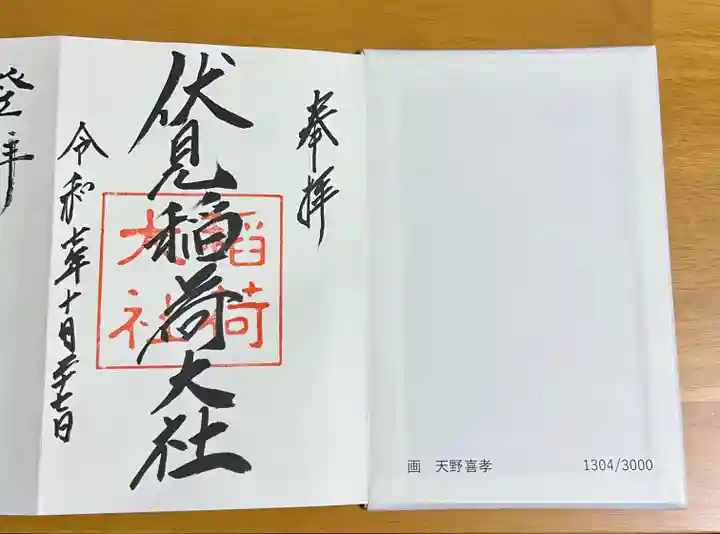 奉拝
伏見稲荷大社
稲荷
大社
令和七年十月二十七日
画 天野喜孝
1304/3000